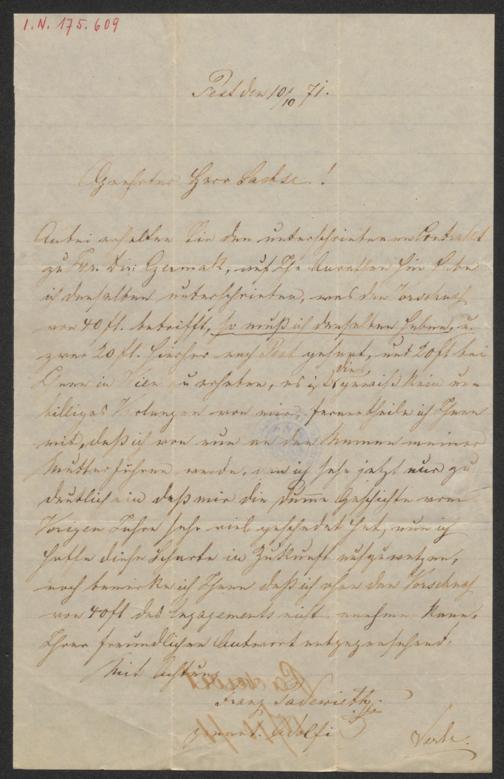 I.N. 175.609
Pest den 10/10 71.
Geehrter Herr Sachse!
Anbei erhalten Sie den unterschriebenen Contrakt
zu Hr. Dir: Czermak, auf Ihr Anrathen hin habe
ich denselben unterschrieben, was den Vorschuß
von 40 fl. betrifft, so muß ich denselben haben, u.
zwar 20 fl. hierher nach Pest gesandt, und 20 fl bei
in Wien zu erhalten, es ist dies gewiß kein un-
billiges Verlangen von mir, ferner theile ich Ihnen
mit, daß ich von nun an den Namen meiner
Mutter führen werde, den ich sehe jetzt nur zu
deutlich ein daß mir die dumme Geschichte vom
Vorigen Jahre sehr viel geschadet hat, nun ich
hoffe diese Scharte in Zukunft auszuwetzen,
noch bemerke ich Ihnen daß ich ohne den Vorschuß
von 40 fl das Engagement nicht nehmen kann.
Ihrer freundlichen Antwort entgegensehend.
Mit Achtung
Franz
genannt Adolfi